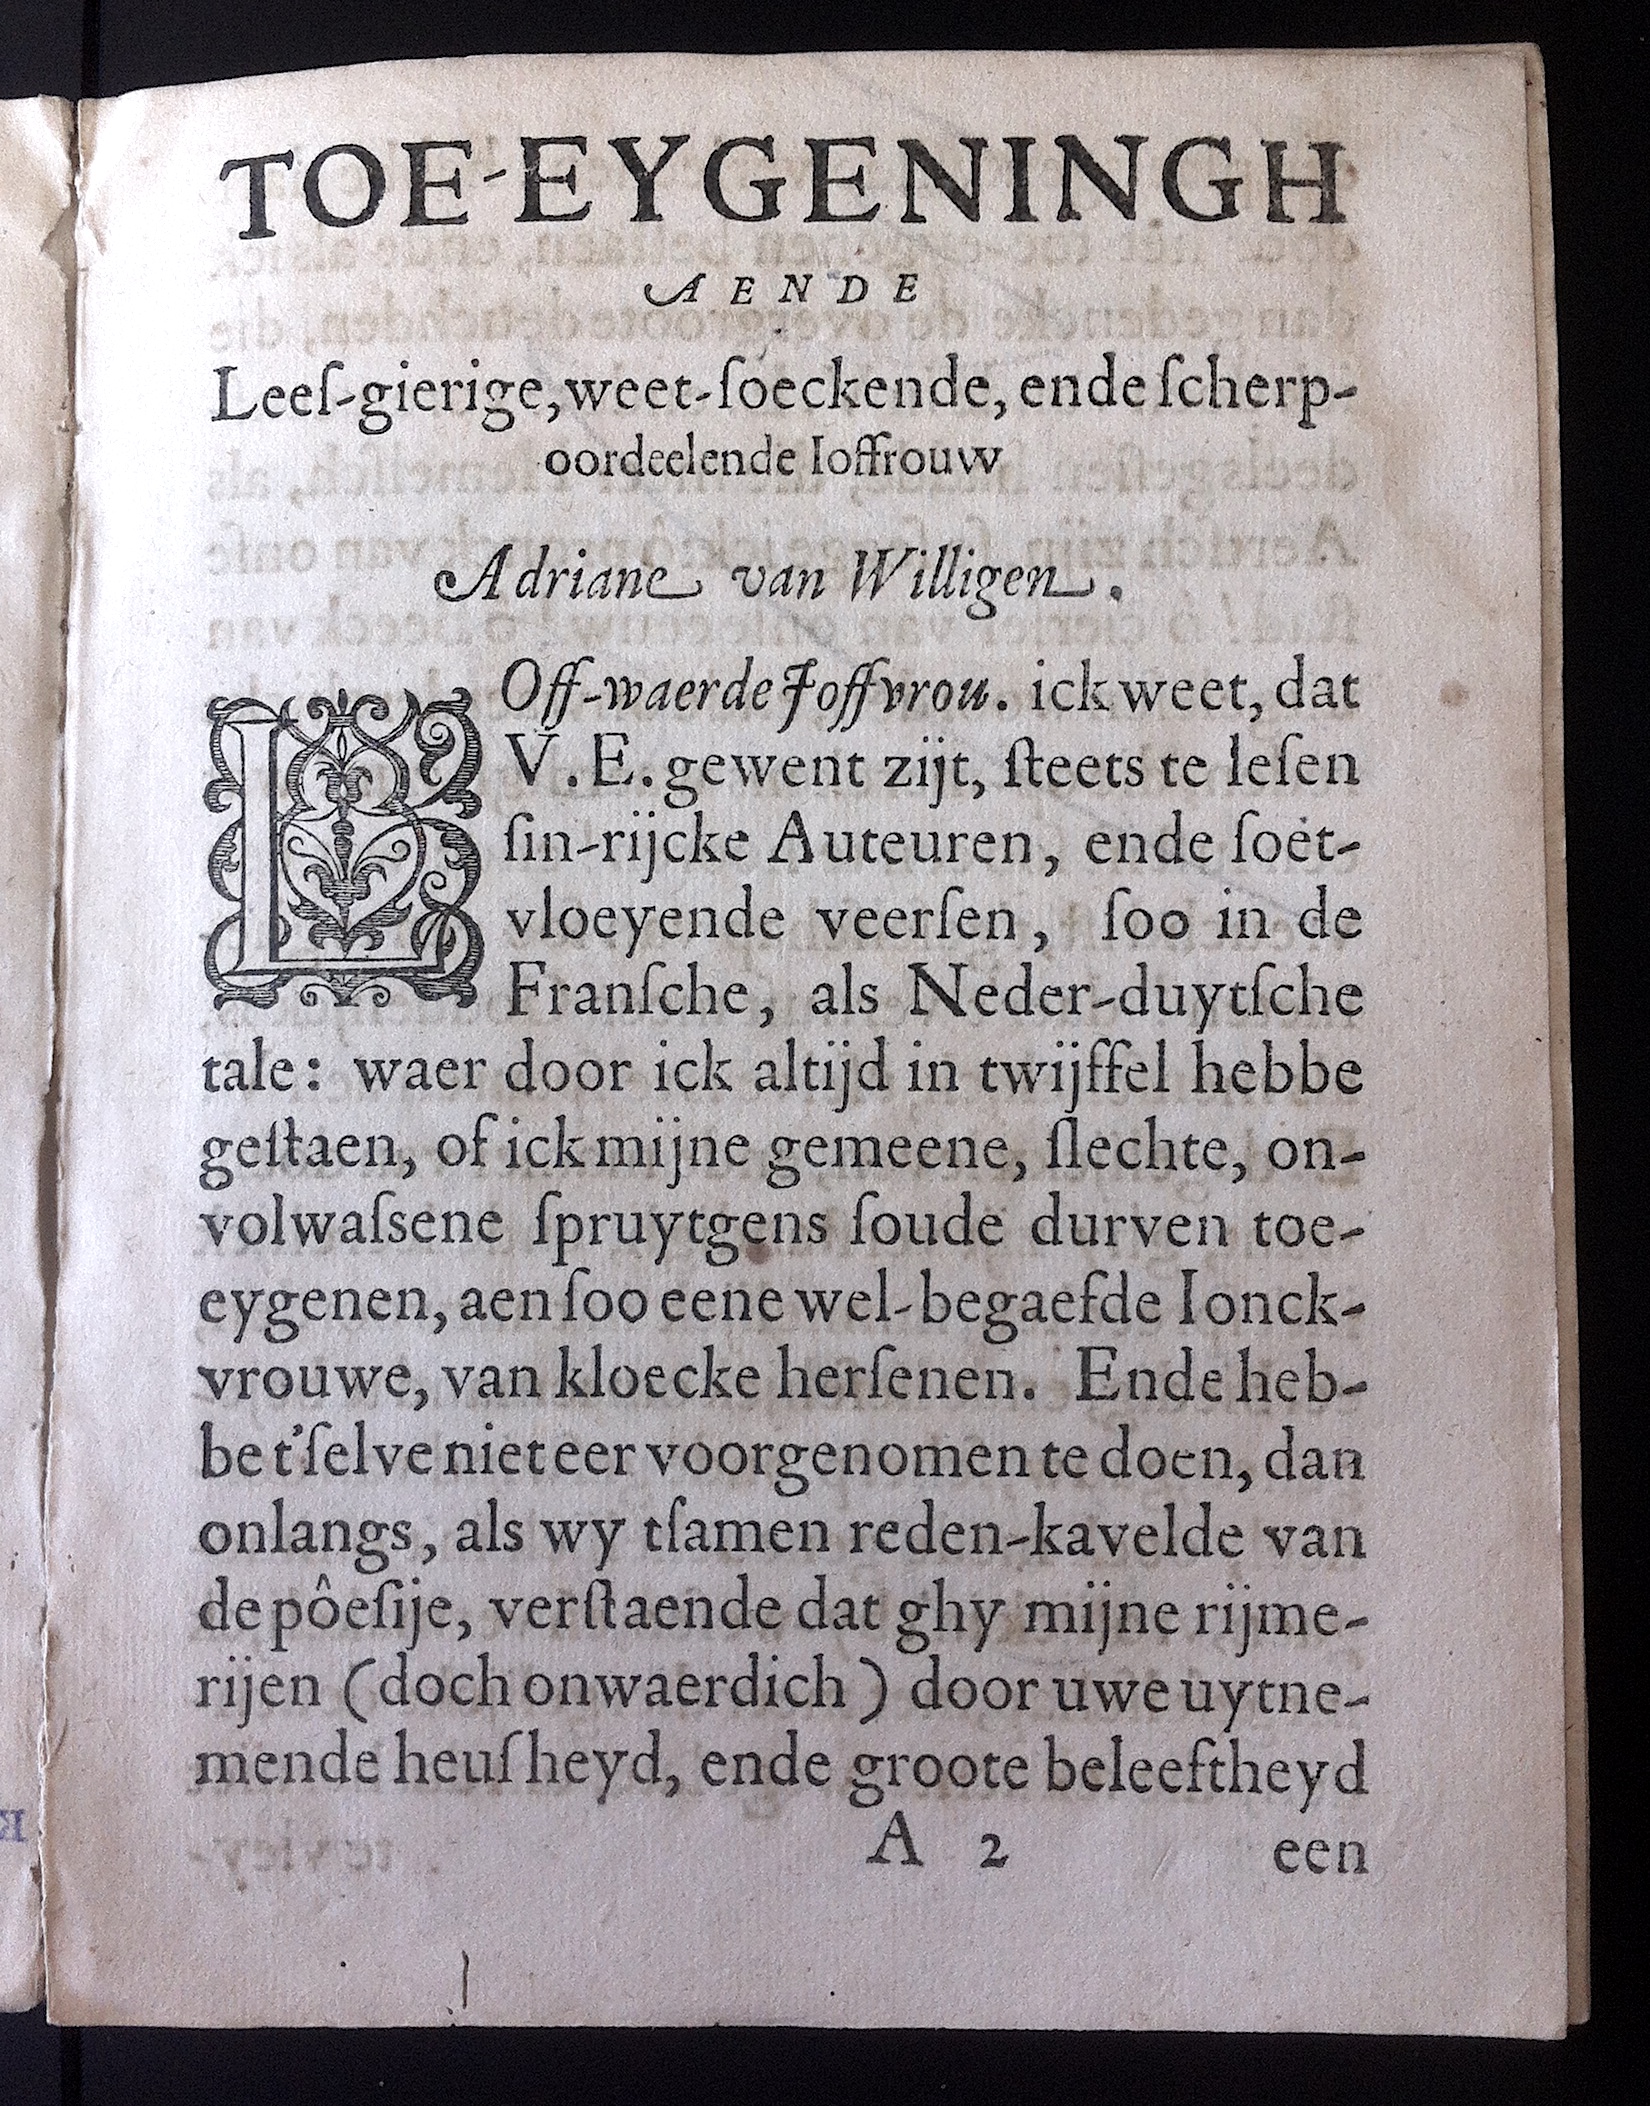 TOE-EYGENINGH
AENDE
Leeſ-gierige, weet-ſoeckende, ende ſcherp-
oordeelende Ioffrouw
Adriane van Willigen.
LOff-waerde Joffvrou. ick weet, dat
V.E. gewent zijt, ſteets te leſen
ſin-rijcke Auteuren, ende ſoet-
vloeyende veerſen, ſoo in de
Franſche, als Neder-duytſche
tale: waer door ick altijd in twijffel hebbe
geſtaen, of ick mijne gemeene, ſlechte, on-
volwaſsene ſpruytgens ſoude durven toe-
eygenen, aen ſoo eene wel-begaefde Ionck-
vrouwe, van kloecke herſenen. Ende heb-
be t'ſelve niet eer voorgenomen te doen, dan
onlangs, als wy tſamen reden-kavelde van
de pôeſije, verſtaende dat ghy mijne rijme-
rijen (doch onwaerdich) door uwe uytne-
mende heuſheyd, ende groote beleeftheyd
A 2 een